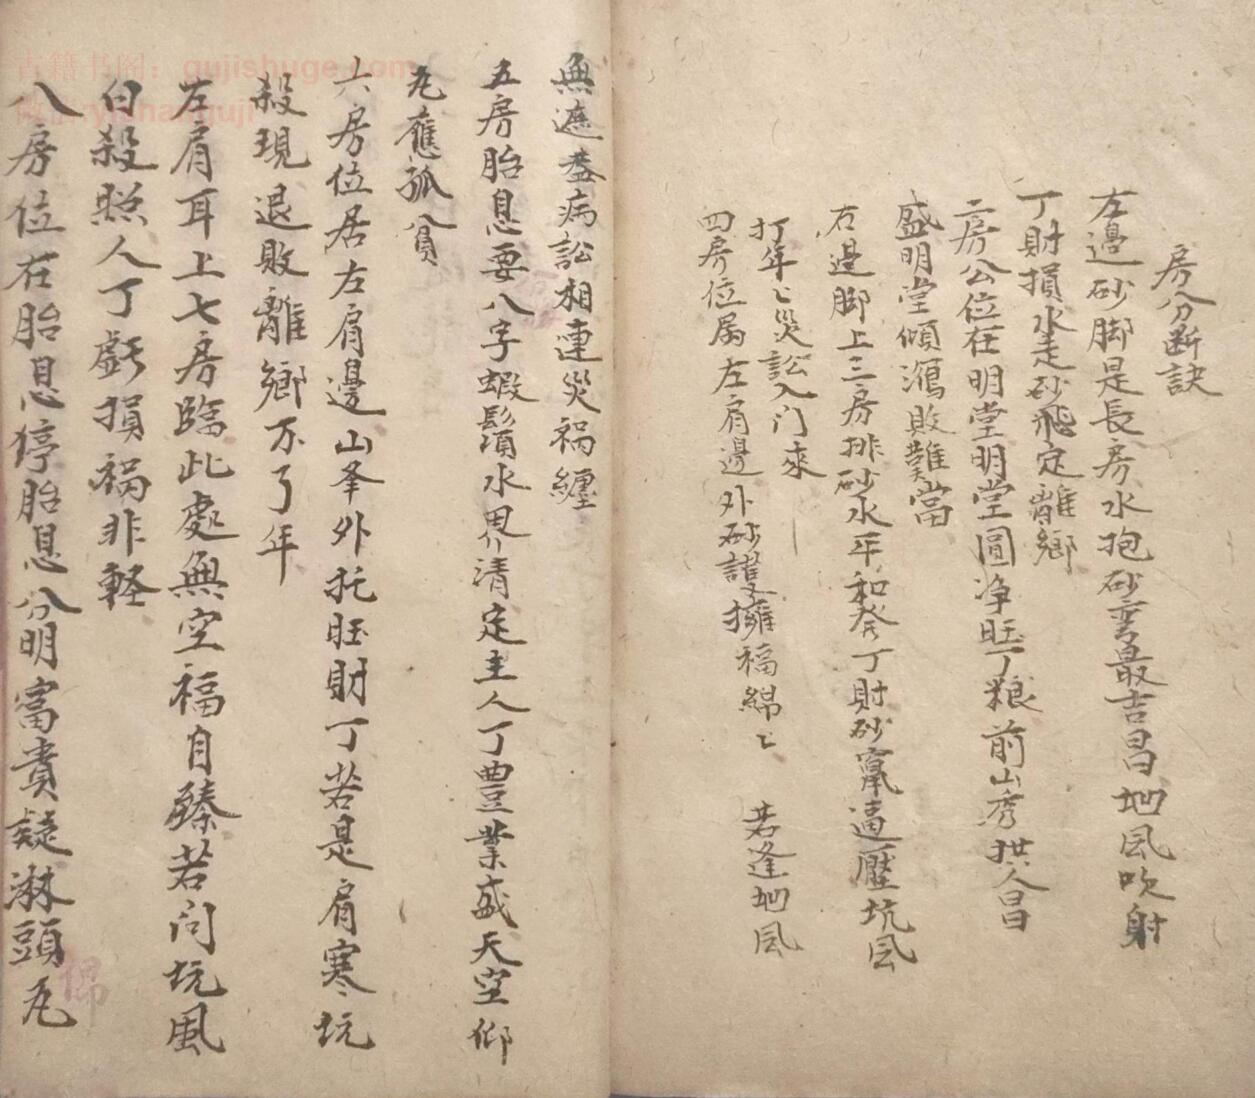 房分断訣
左邊砂脚是長房水抱砂弯最吉昌坳風吹射
丁財損水走砂飛定離鄉
二房公位在明堂明堂圓净旺丁粮前山秀拱人昌
盛明堂傾瀉敗難當
右邊脚上三房排砂水平和發丁財砂窜逼壓坑風
打年〻災訟入门來
四房位居左肩邊外砂護擁福綿〻 若逢坳風
無遮盖病訟相連災禍纏
五房胎息要八字蝦鬚水界清定主人丁豊業盛天空仰
瓦應孤貧
六房位居右肩邊山峯外托旺財丁若是肩寒坑
殺現退敗離鄉不了年
左肩耳上七房臨此處無空福自臻若问坑風
白殺照人丁虧損禍非軽
八房位在胎息停胎息分明富貴疑淋頭瓦
古籍书阁：gujishuge.com